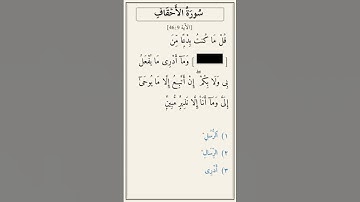 سُورَةُ الأَحْقَافِ
[الآية 9 :46]
قُلْ مَا كُنتُ بِدْعًا مِّنَ
[ ] وَمَآ أَدْرِى مَا يُفْعَلُ
بِى وَلَا بِكُمْ ۖ إِنْ أَتَّبِعُ إِلَّا مَا يُوحَىٰٓ
إِلَىَّ وَمَآ أَنَا۠ إِلَّا نَذِيرٌ مُّبِينٌ
١) ٱلرُّسُلِ
٢) الرِّسَالِ
٣) أَدْرِى